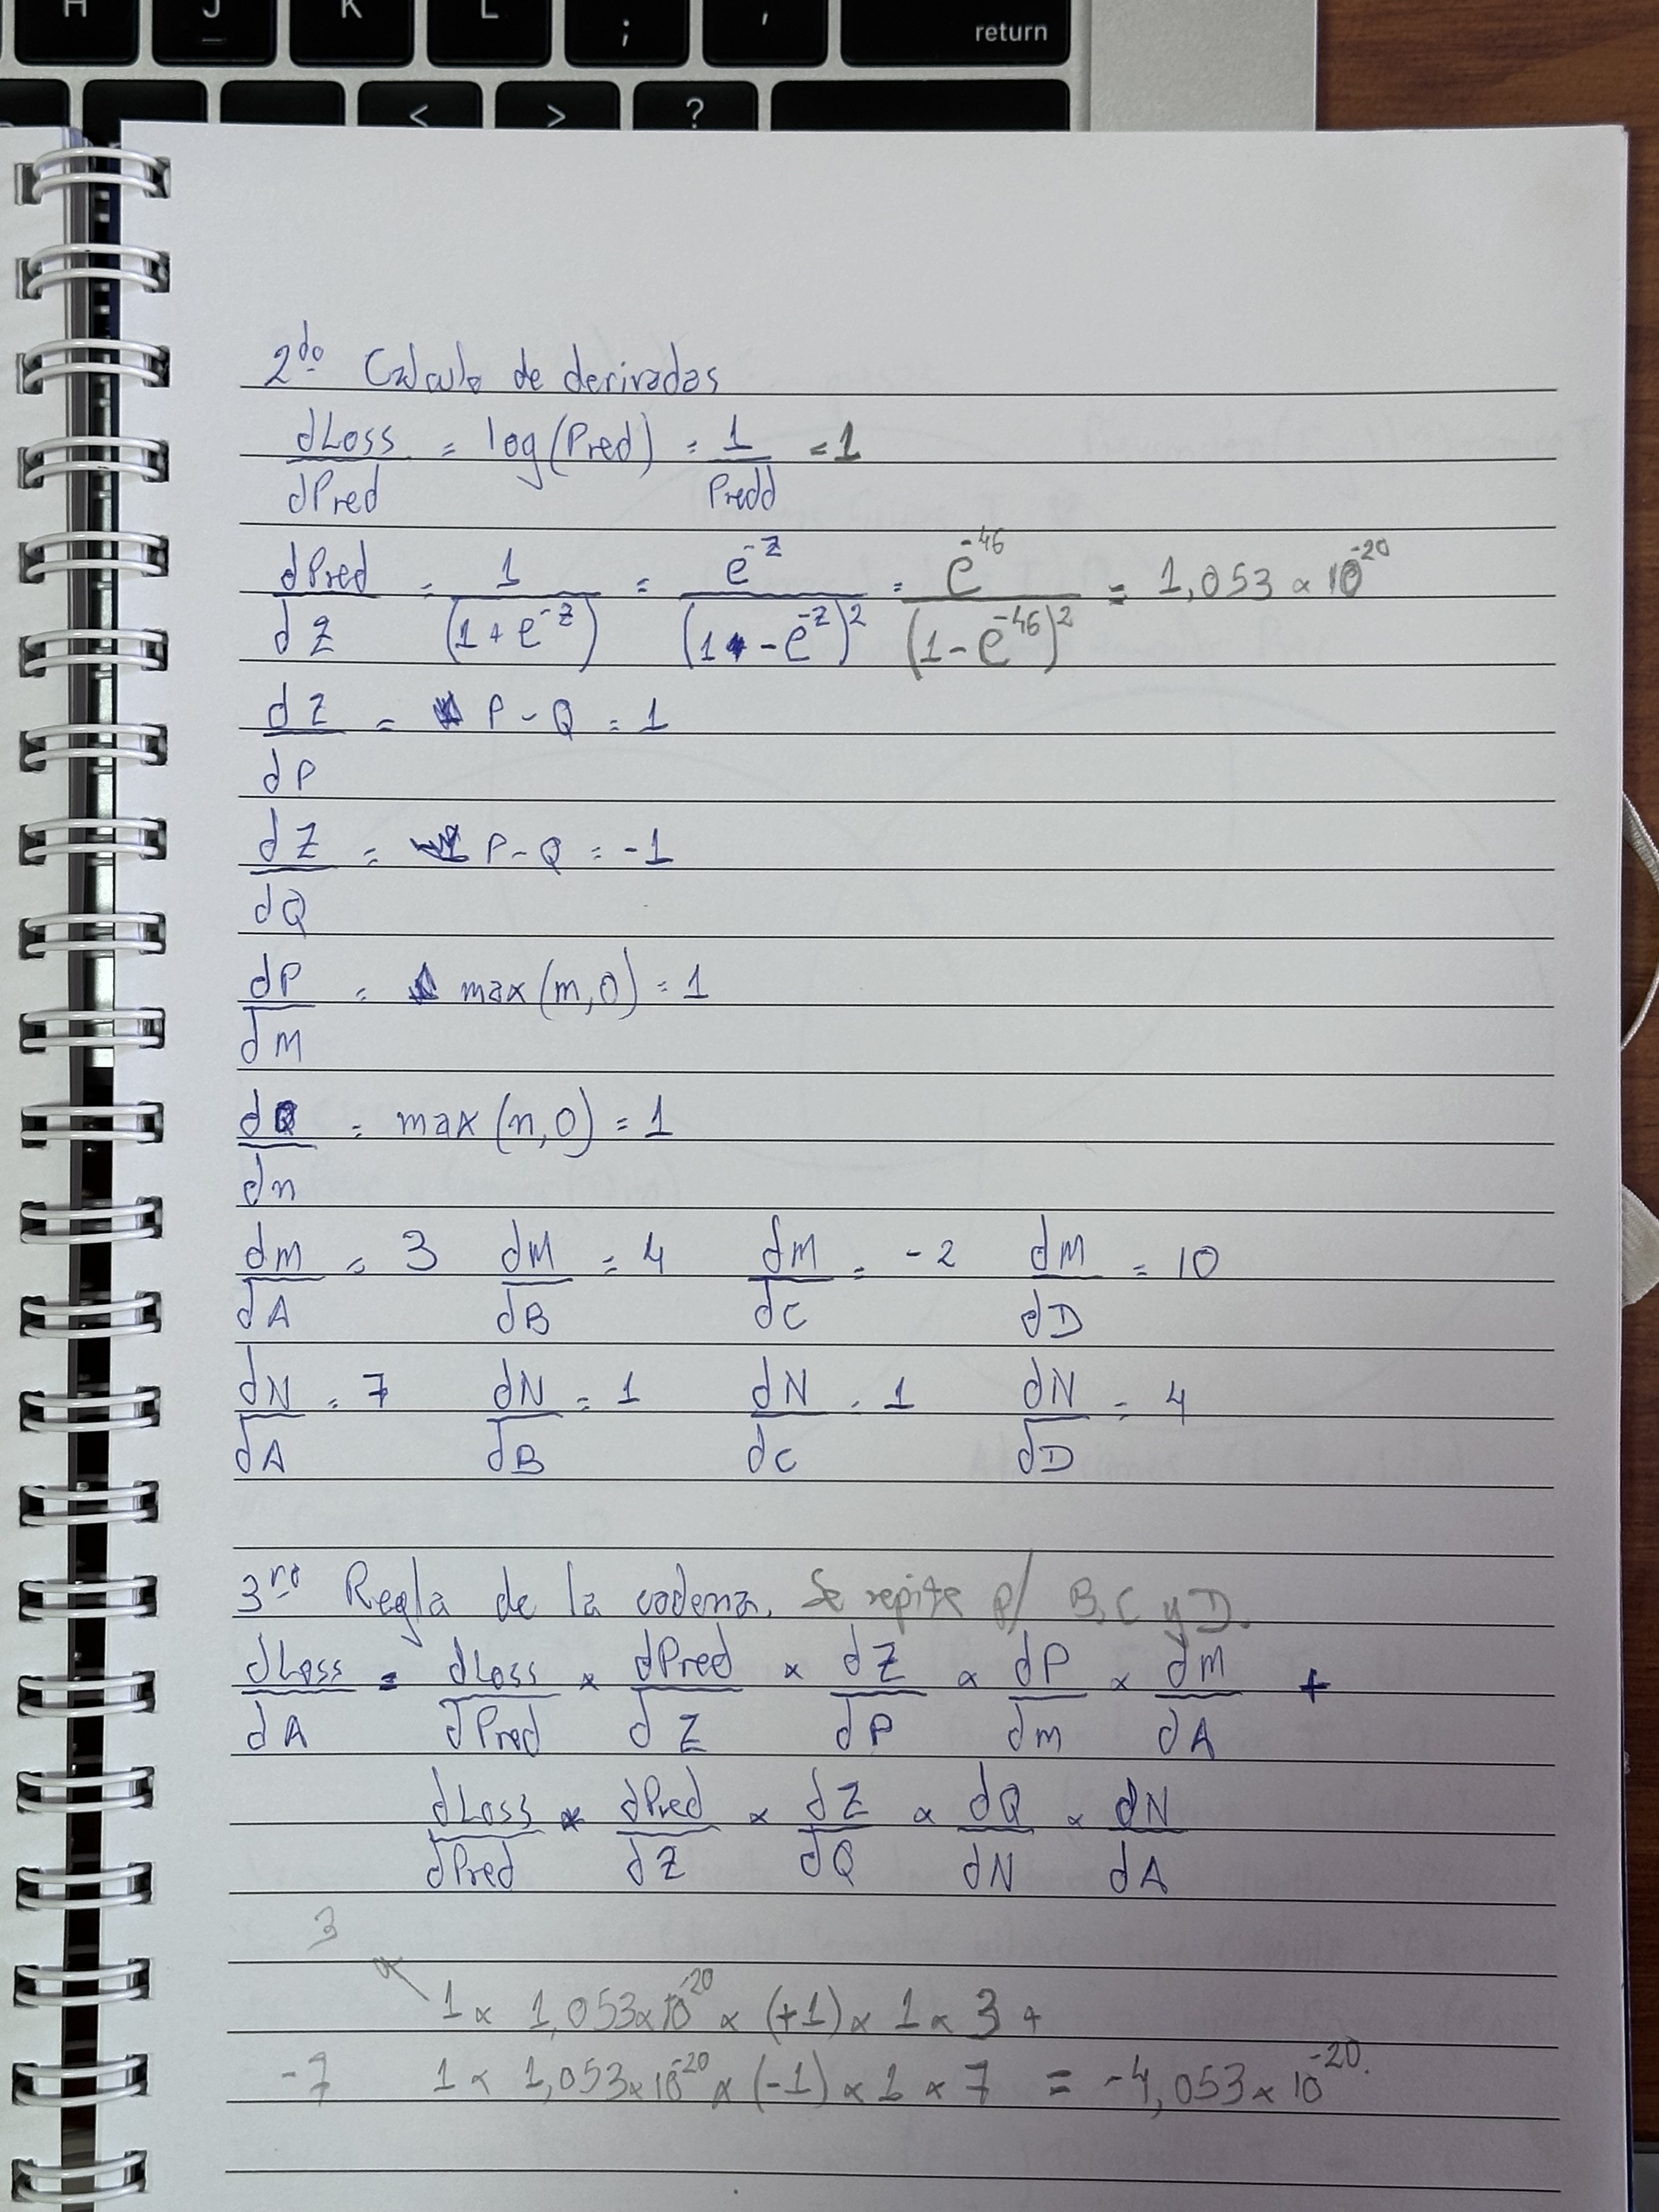 H J K L ; ' return
< > ?
2do Calculo de derivadas
dLoss/dPred = log(Pred) = 1/Predd = 1
dPred/dz = 1/(1+e^-z) = e^-z/(1--e^-z)^2 = e^-46/(1-e^-46)^2 = 1,053 x 10^-20
dz/dP = P - Q = 1
dz/dQ = P - Q = -1
dP/dM = max(m,0) = 1
dQ/dn = max(n,0) = 1
dm/dA = 3 dM/dB = 4 dM/dC = -2 dM/dD = 10
dN/dA = 7 dN/dB = 1 dN/dC = 1 dN/dD = 4
3ro Regla de la cadena. Se repite p/ B, C y D.
dLoss/dA = dLoss/dPred x dPred/dz x dz/dP x dP/dm x dm/dA +
dLoss/dPred x dPred/dz x dz/dQ x dQ/dN x dN/dA
3
x 1 x 1,053x10^-20 x (+1) x 1 x 3 +
-7 1 x 1,053x10^-20 x (-1) x 1 x 7 = -4,053 x 10^-20.